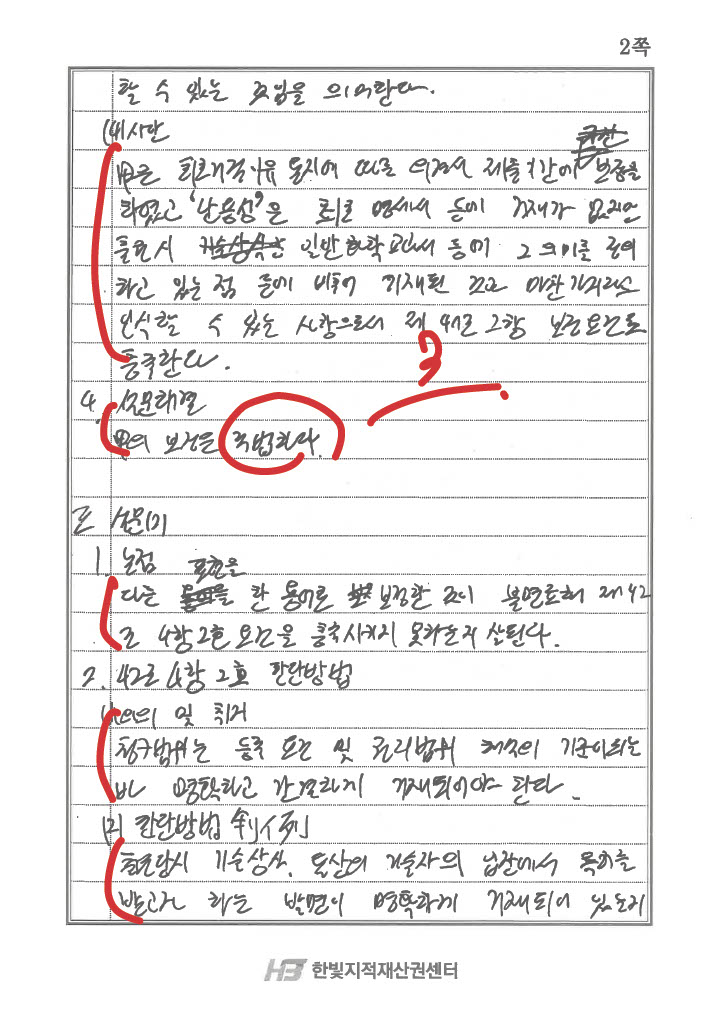 2쪽
할 수 있는 것임을 의미한다.
(4) 사안
甲은 최초거절이유 통지에 따른 의견서 제출기간에 보정을
하였고 '난용성'은 최초 명세서 등에 기재가 없지만
출원시 일반화학 교과서 등에 그 의미를 정의
하고 있는 점 등에 비추어 기재된 것과 마찬가지라고
인식할 수 있는 사항으로서 제47조 2항 보정요건도
충족한다.
4. 설문해결
甲의 보정은 적법하다.
II 설문(2)
1. 논점 표현을
다른 한 용어로 보정한 것이 불명료해 제42
조 4항 2호 요건을 충족시키지 못하는지 살핀다.
2. 42조 4항 2호 판단방법
(1) 의의 및 취지
청구범위는 등록 요건 및 권리범위 해석의 기준이 되는
바 명확하고 간결하게 기재되어야 한다.
(2) 판단방법 判例
출원당시 기술상식, 통상의 기술자의 입장에서 특허를
받고자 하는 발명이 명확하게 기재되어 있는지
HB 한빛지적재산권센터